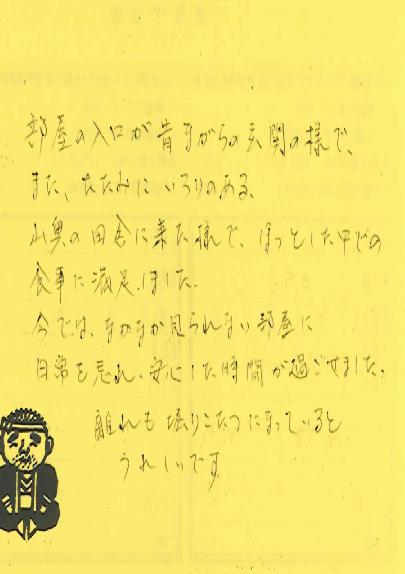 部屋の入口が昔ながらの玄関の様で、
また、たたみにいろりのある、
山奥の田舎に来た様で、ほっとした中での
食事に満足しました。
今では、なかなか見られない部屋に
日常を忘れ、安心した時間が過ごせました。
離れも堀りこたつになっていると
うれしいです